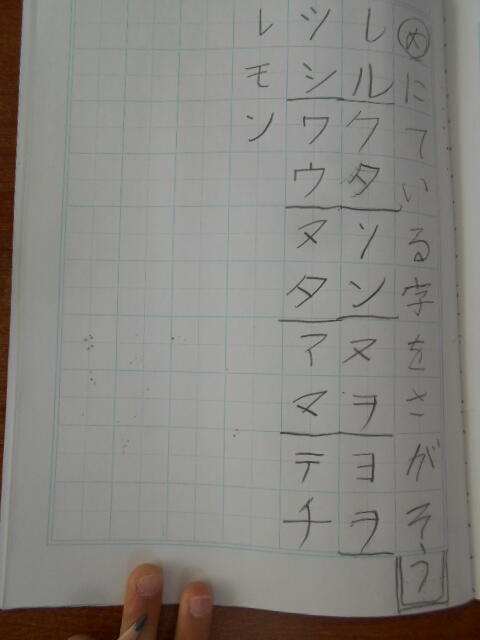 めにている字をさがそう
レルクタソンヌヲヨヲ
ツシワウヌタアマテチ
レモン